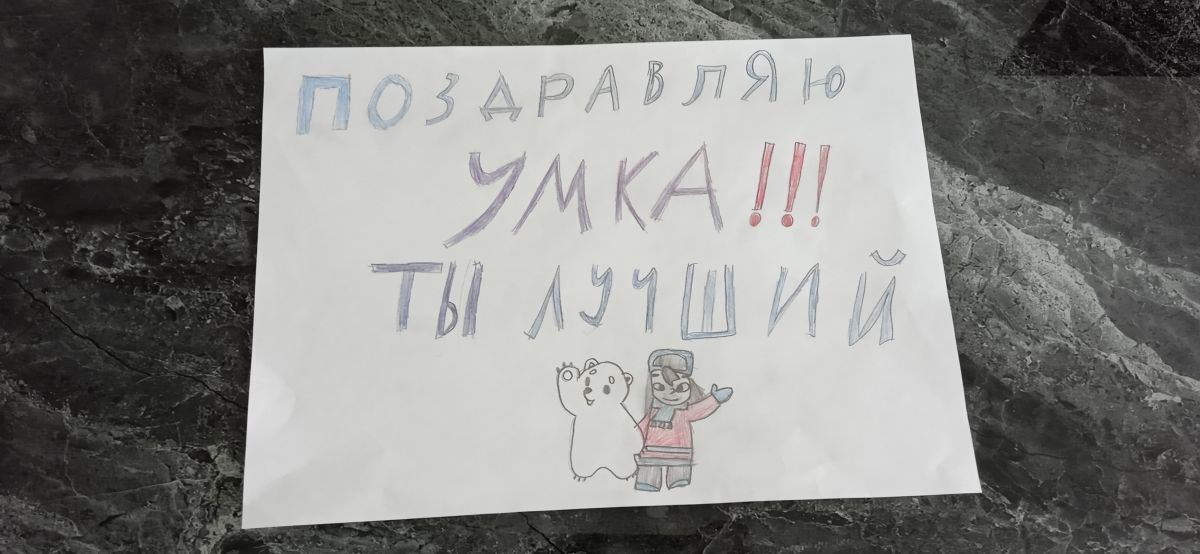 ПОЗДРАВЛЯЮ
УМКА!!!
ТЫ ЛУЧШИЙ